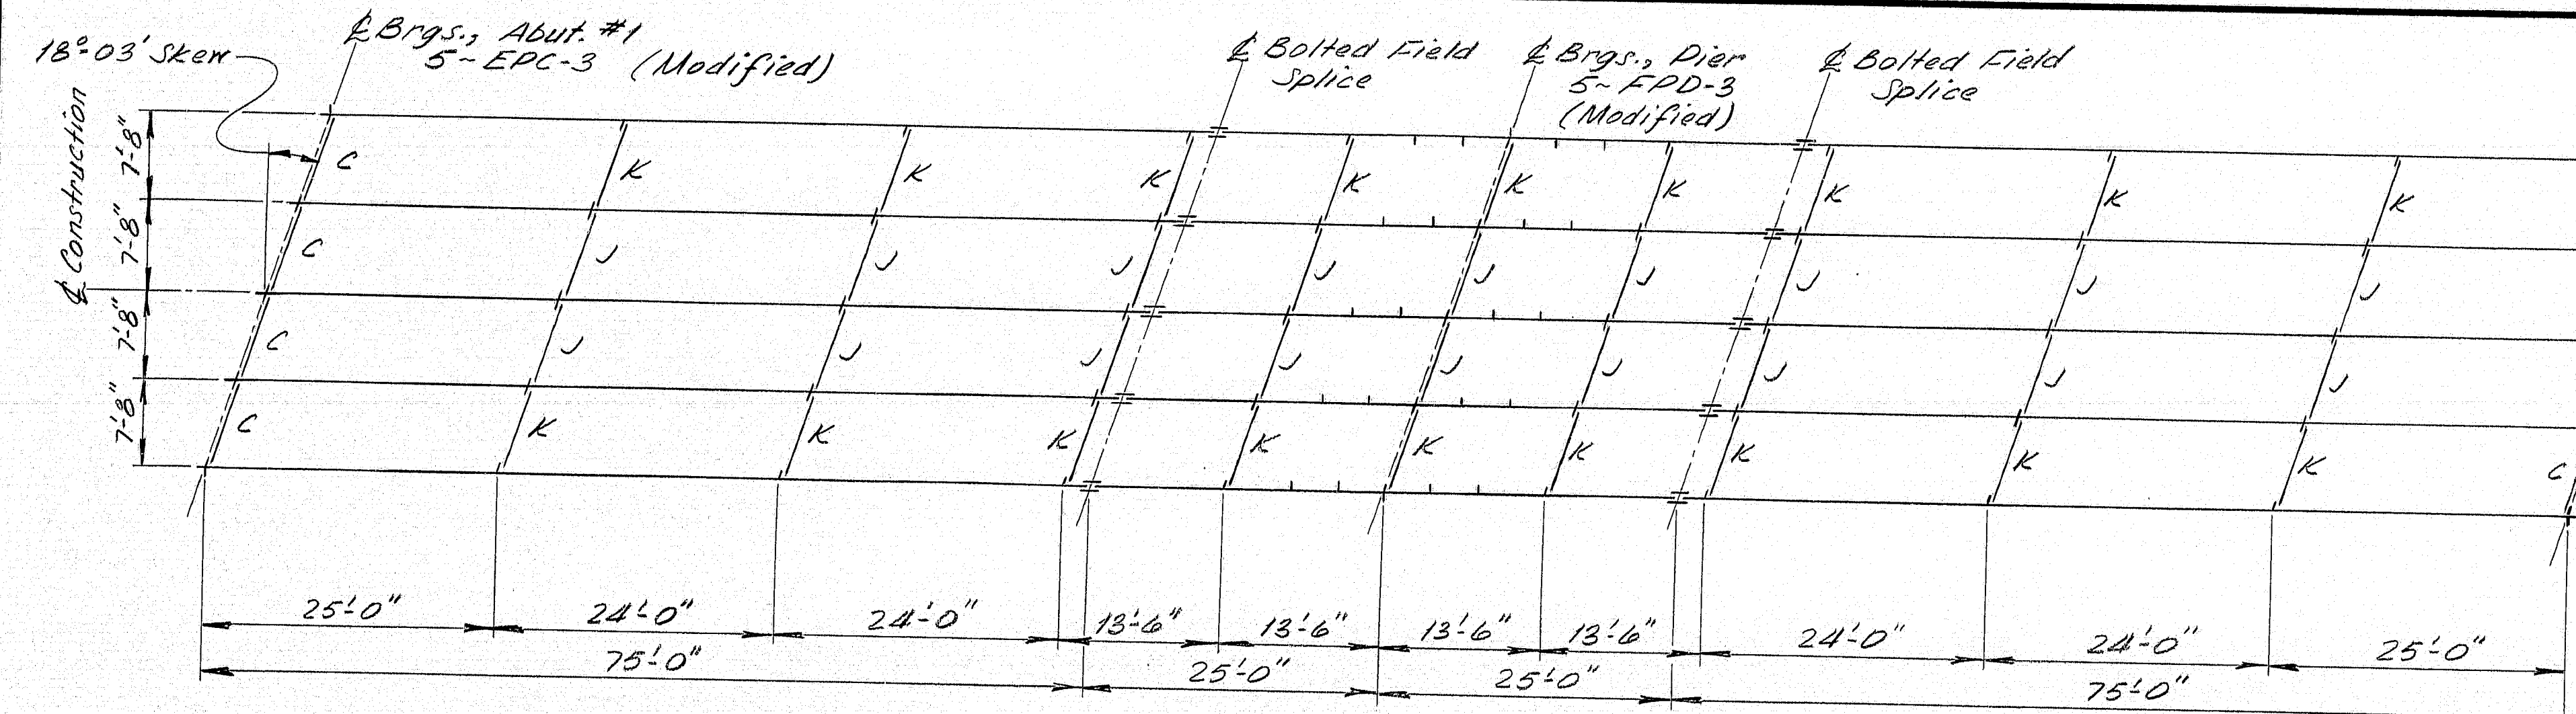 18°-03' Skew
℄ Brgs., Abut. #1
5~EPC-3 (Modified)
℄ Bolted Field
Splice
℄ Brgs., Pier
5~FPD-3
(Modified)
℄ Bolted Field
Splice
℄ Construction
7'-8"
7'-8"
7'-8"
7'-8"
C K K K K K K K K K
C J J J J J J J J J
C J J J J J J J J J
C K K K K K K K K K C
25'-0" 24'-0" 24'-0" 13'-6" 13'-6" 13'-6" 13'-6" 24'-0" 24'-0" 25'-0"
75'-0" 25'-0" 25'-0" 75'-0"